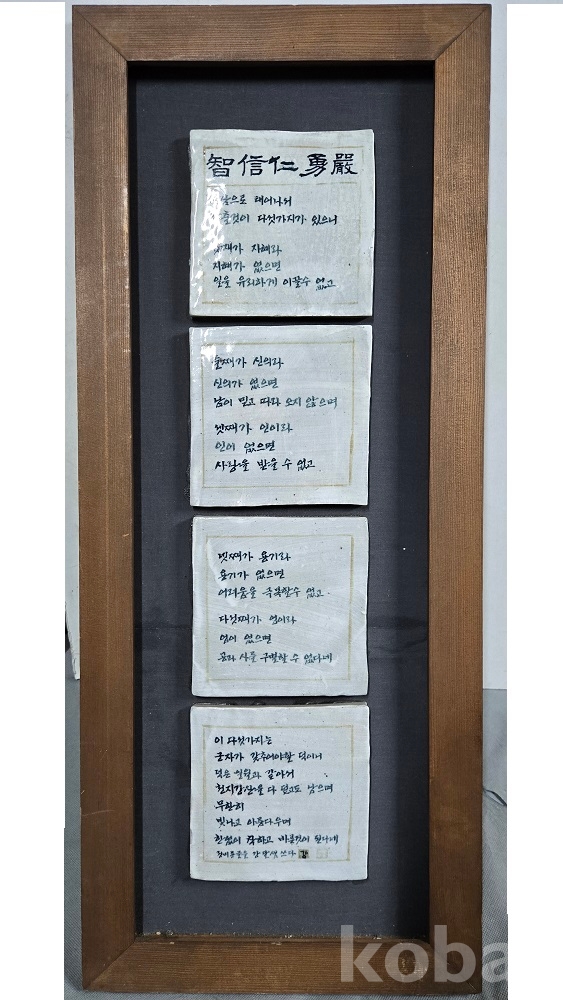 智信仁勇嚴
태어나서
다섯가지가 있으니
지혜라
지혜가 없으면
일을 유리하게 이끌수 없고
둘째가 신의라
신의가 없으면
남이 믿고 따라 오지 않으며
넷째가 인이라
인이 없으면
사랑을 받을 수 없고
넷째가 용기라
용기가 없으면
어려움을 극복할수 없고
다섯째가 엄이라
엄이 없으면
공과 사를 구별할 수 없다네
이 다섯가지는
군자가 갖추어야할 덕이니
덕은 일월과 같아서
천지강산을 다 덮고도 남으며
무한히
빛나고 아름다우며
한없이 착하고 바를것이 된다네
koba